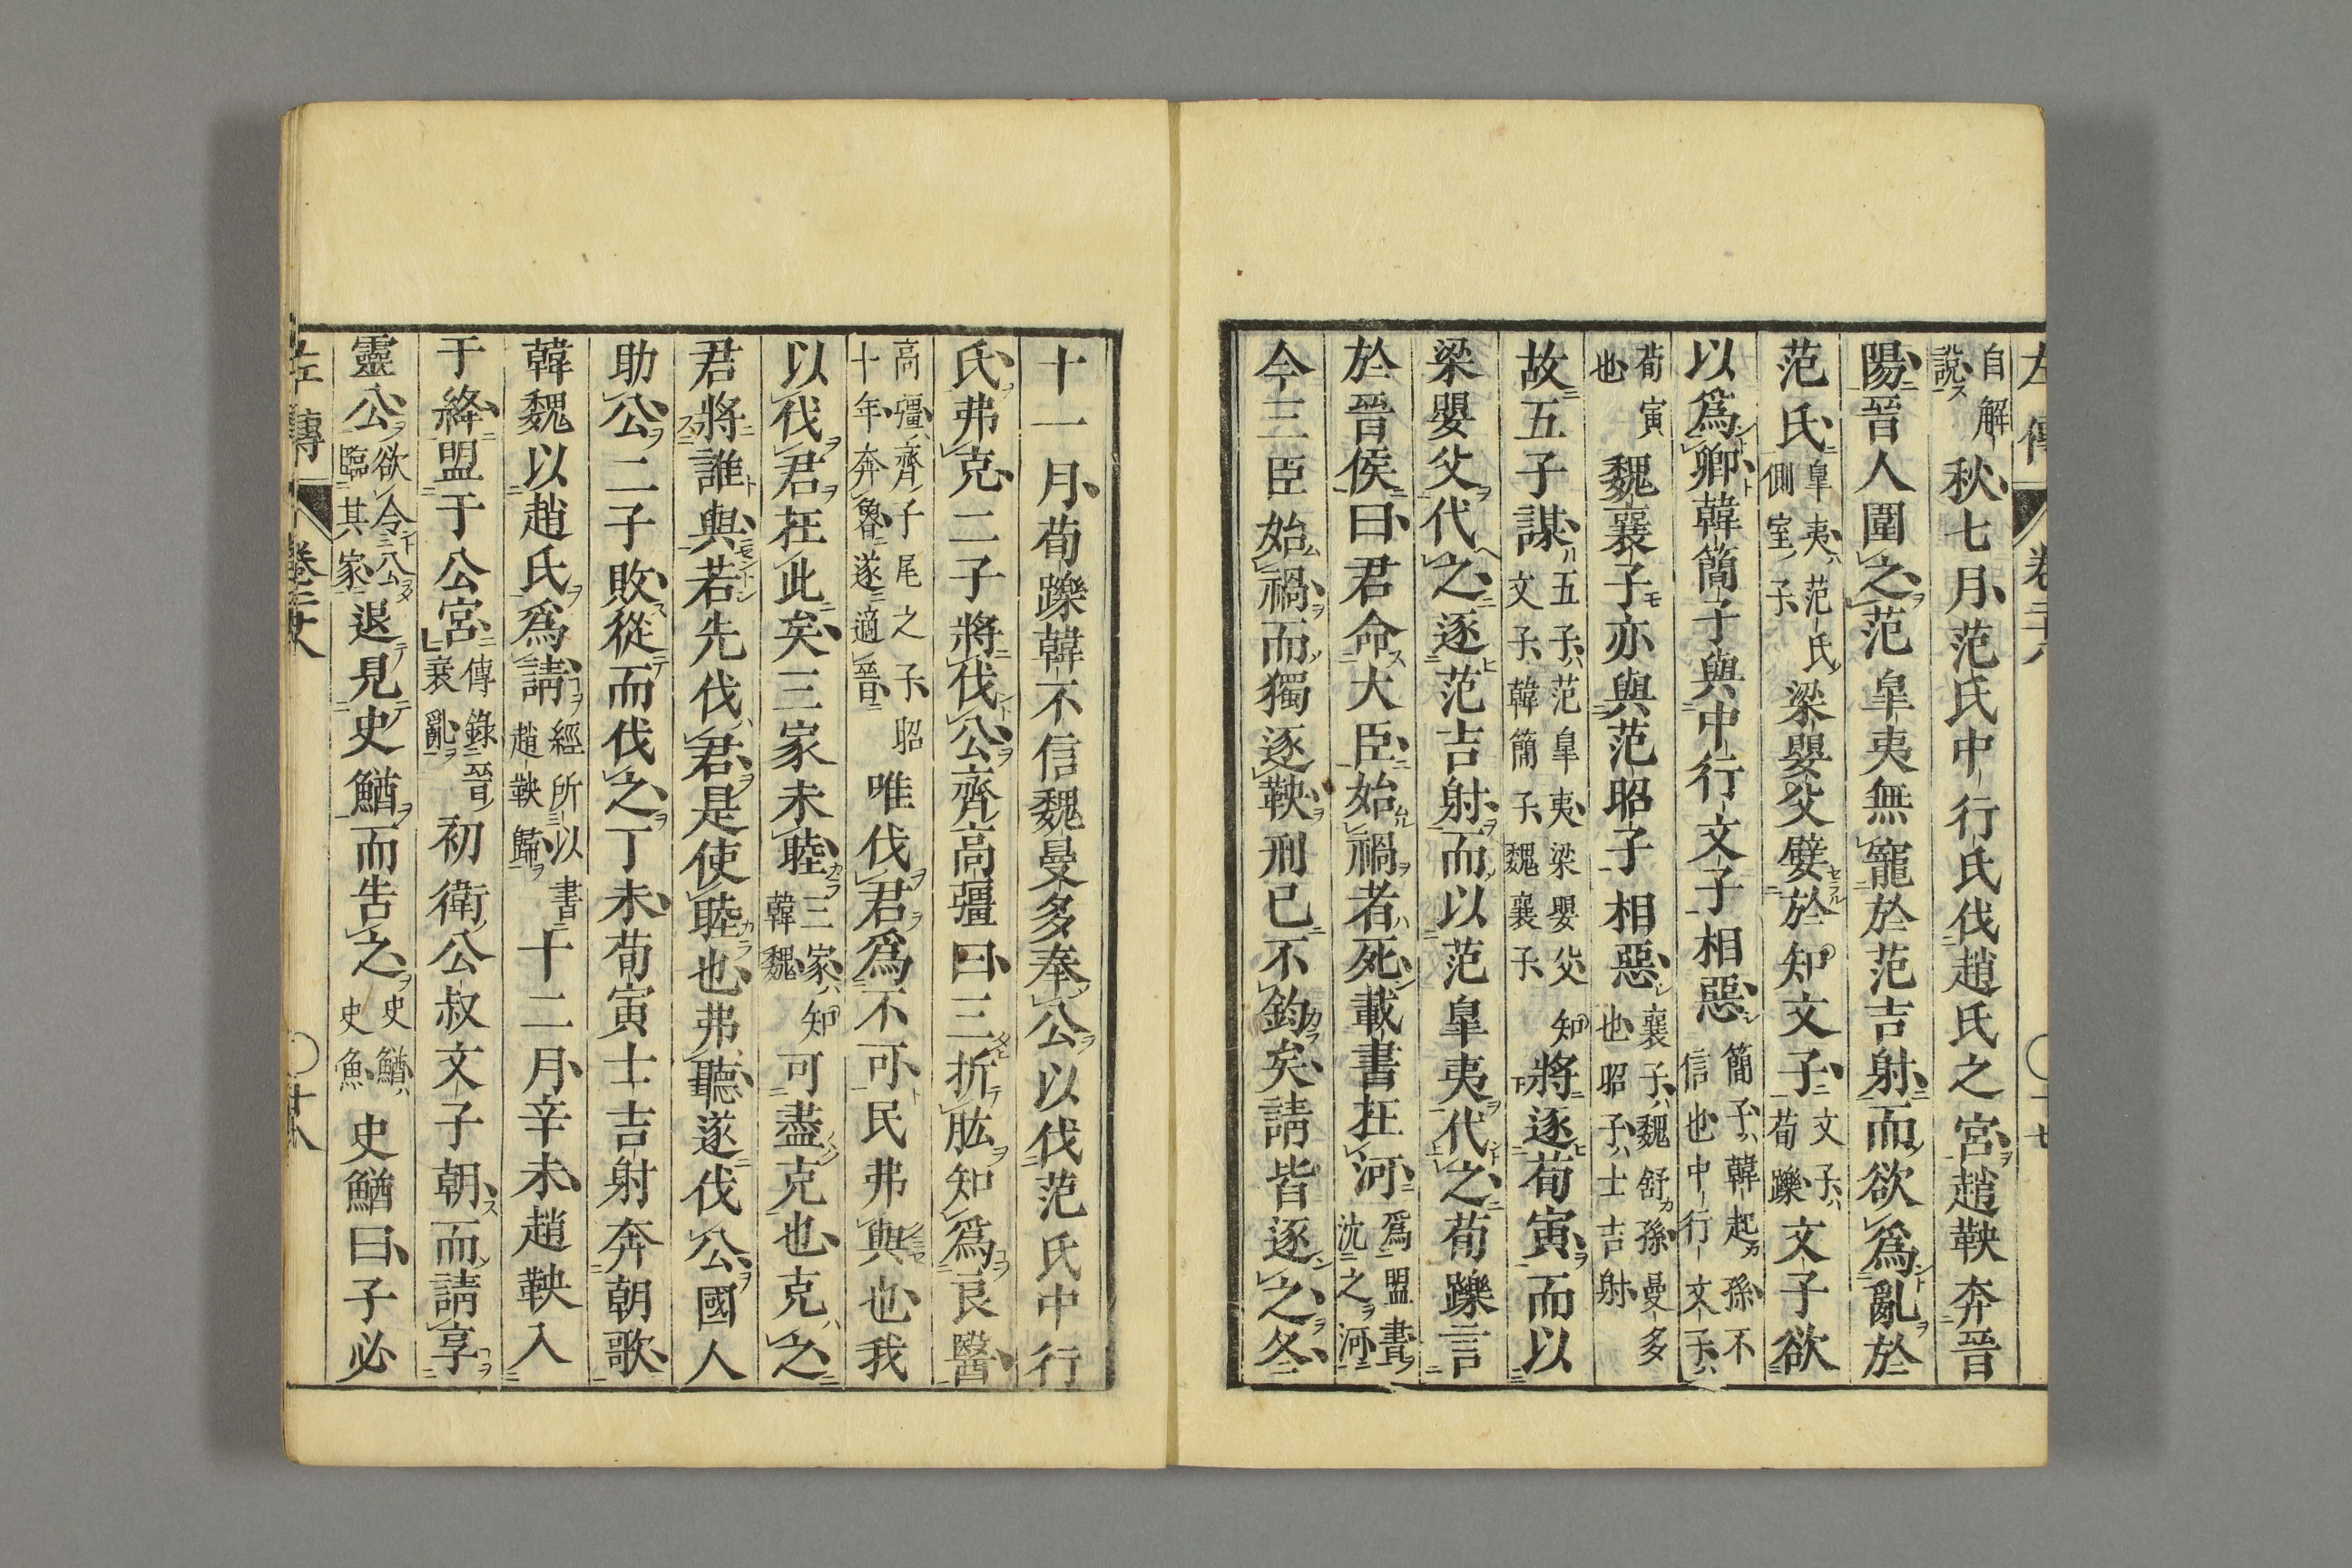 左傳 卷二十八 〇十七
自解說秋七月范氏中行氏伐趙氏之宮趙鞅奔晉
陽晉人圍之范皐夷無寵於范吉射而欲爲亂於
范氏皐夷范氏側室子梁嬰父嬖於知文子文子荀躒文子欲
以爲卿韓簡子與中行文子相惡簡子韓起孫不信也中行文子
荀寅也魏襄子亦與范昭子相惡襄子魏舒孫曼多也昭子士吉射
故五子謀五子范皐夷梁嬰父知文子韓簡子魏襄子將逐荀寅而以
梁嬰父代之逐范吉射而以范皐夷代之荀躒言
於晉侯曰君命大臣始禍者死載書在河爲盟書沈之河
今三臣始禍而獨逐鞅刑已不鈞矣請皆逐之冬
十一月荀躒韓不信魏曼多奉公以伐范氏中行
氏弗克二子將伐公齊高彊曰三折肱知爲良醫
高彊齊子尾之子昭十年奔魯遂適晉唯伐君爲不可民弗與也我
以伐君在此矣三家未睦三家知韓魏可盡克也克之
君將誰與若先伐君是使睦也弗聽遂伐公國人
助公二子敗從而伐之丁未荀寅士吉射奔朝歌
韓魏以趙氏爲請經所以書趙鞅歸十二月辛未趙鞅入
于絳盟于公宮傳錄晉衰亂初衛公叔文子朝而請享
靈公欲令公臨其家退見史鰌而告之史鰌史魚史鰌曰子必
左傳 卷二十八 〇十八